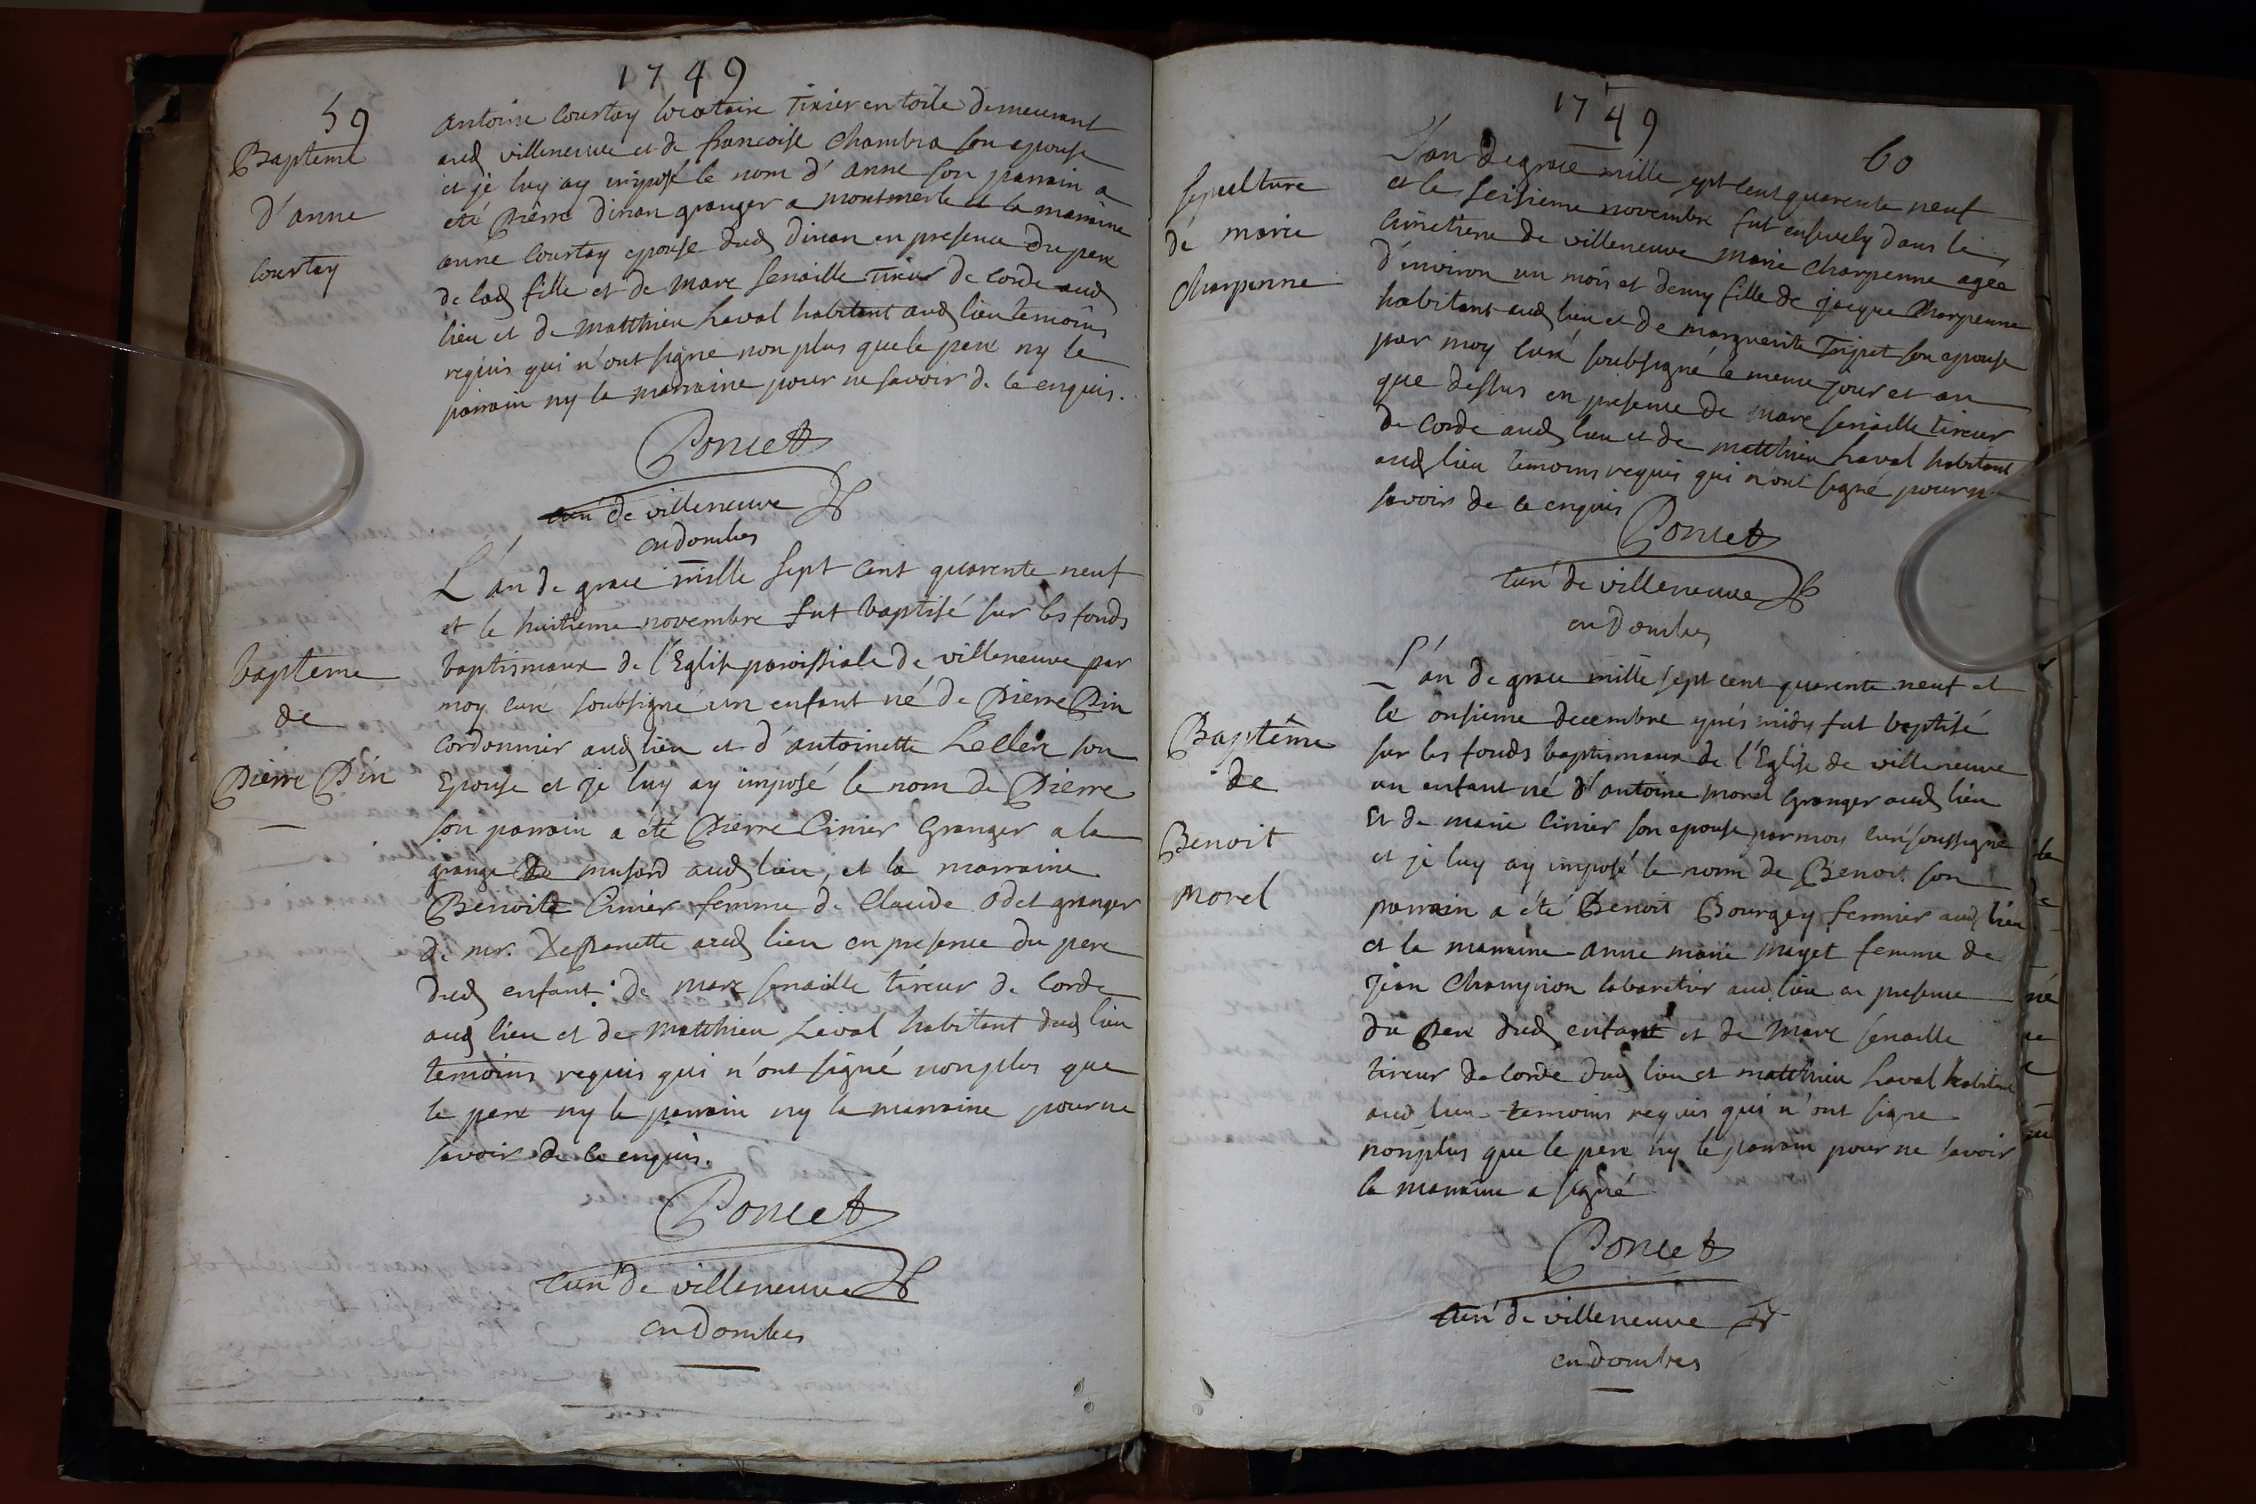 1749
59
Bapteme
d'anne
Courtay
antoine Courtay locataire tixier en toile demeurant
aud villeneuve et de francoise Chambra son epouse
et je luy ay imposé le nom d'anne son parrain a
eté Pierre dinan granger a montmerle et la marraine
anne Courtay epouse dud dinan en presence du pere
de lad fille et de Marc Senaille tireur de corde aud
lieu et de Matthieu Laval habitant aud lieu temoins
requis qui n'ont signe non plus que le pere ny le
parrain ny la marraine pour ne savoir de ce enquis.
Poncet
curé de villeneuve
en dombes
bapteme
de
Pierre Pin
L'an de grace mille sept cent quarente neuf
et le huitieme novembre fut baptisé sur les fonds
baptismaux de l'Eglise paroissiale de villeneuve par
moy curé soubsigné un enfant né de Pierre Pin
cordonnier aud lieu et d'antoinette Lecler son
Epouse et je luy ay imposé le nom de Pierre
son parrain a eté Pierre Cinier Granger a la
grange de musard aud lieu, et la marraine
Benoite Cinier femme de Claude Odet granger
de mr. aud lieu en presence du pere
dud enfant de marc senaille tireur de corde
aud lieu et de Matthieu Laval habitant dud lieu
temoins requis qui n'ont signé nonplus que
le pere ny le parrain ny la marraine pour ne
savoir de ce enquis.
Poncet
curé de villeneuve
en Dombes
1749
60
sepulture
de marie
Charpenne
L'an de grace mille sept cent quarente neuf
et le seisieme novembre fut ensevely dans le
cimetiere de villeneuve marie Charpenne agee
d'environ un mois et demy fille de jacque Charpenne
habitant aud lieu et de marguerite Tripet son epouse
par moy curé soubsigné le meme jour et an
que dessus en presence de marc senaille tireur
de corde aud lieu et de matthieu Laval habitant
aud lieu temoins requis qui n'ont signé pour ne
savoir de ce enquis
Poncet
curé de villeneuve
en Dombes
Baptême
de
Benoit
morel
L'an de grace mille sept cent quarente neuf et
le onsieme decembre après midy fut baptisé
sur les fonds baptismaux de l'Eglise de villeneuve
un enfant né d'antoine morel Granger aud lieu
Et de marie Cinier son epouse par moy curé soussigné
et je luy ay imposé le nom de Benoit son
parrain a été Benoit Bourgey fermier aud lieu
et la marraine anne marie mayet femme de
Jean Champion cabaretier aud lieu en presence
du Pere dud enfant et de Marc senaille
tireur de corde dud lieu et matthieu Laval habitant
aud lieu temoins requis qui n'ont signe
nonplus que le pere ny le parrain pour ne savoir
la marraine a signé
Poncet
curé de villeneuve
en dombes